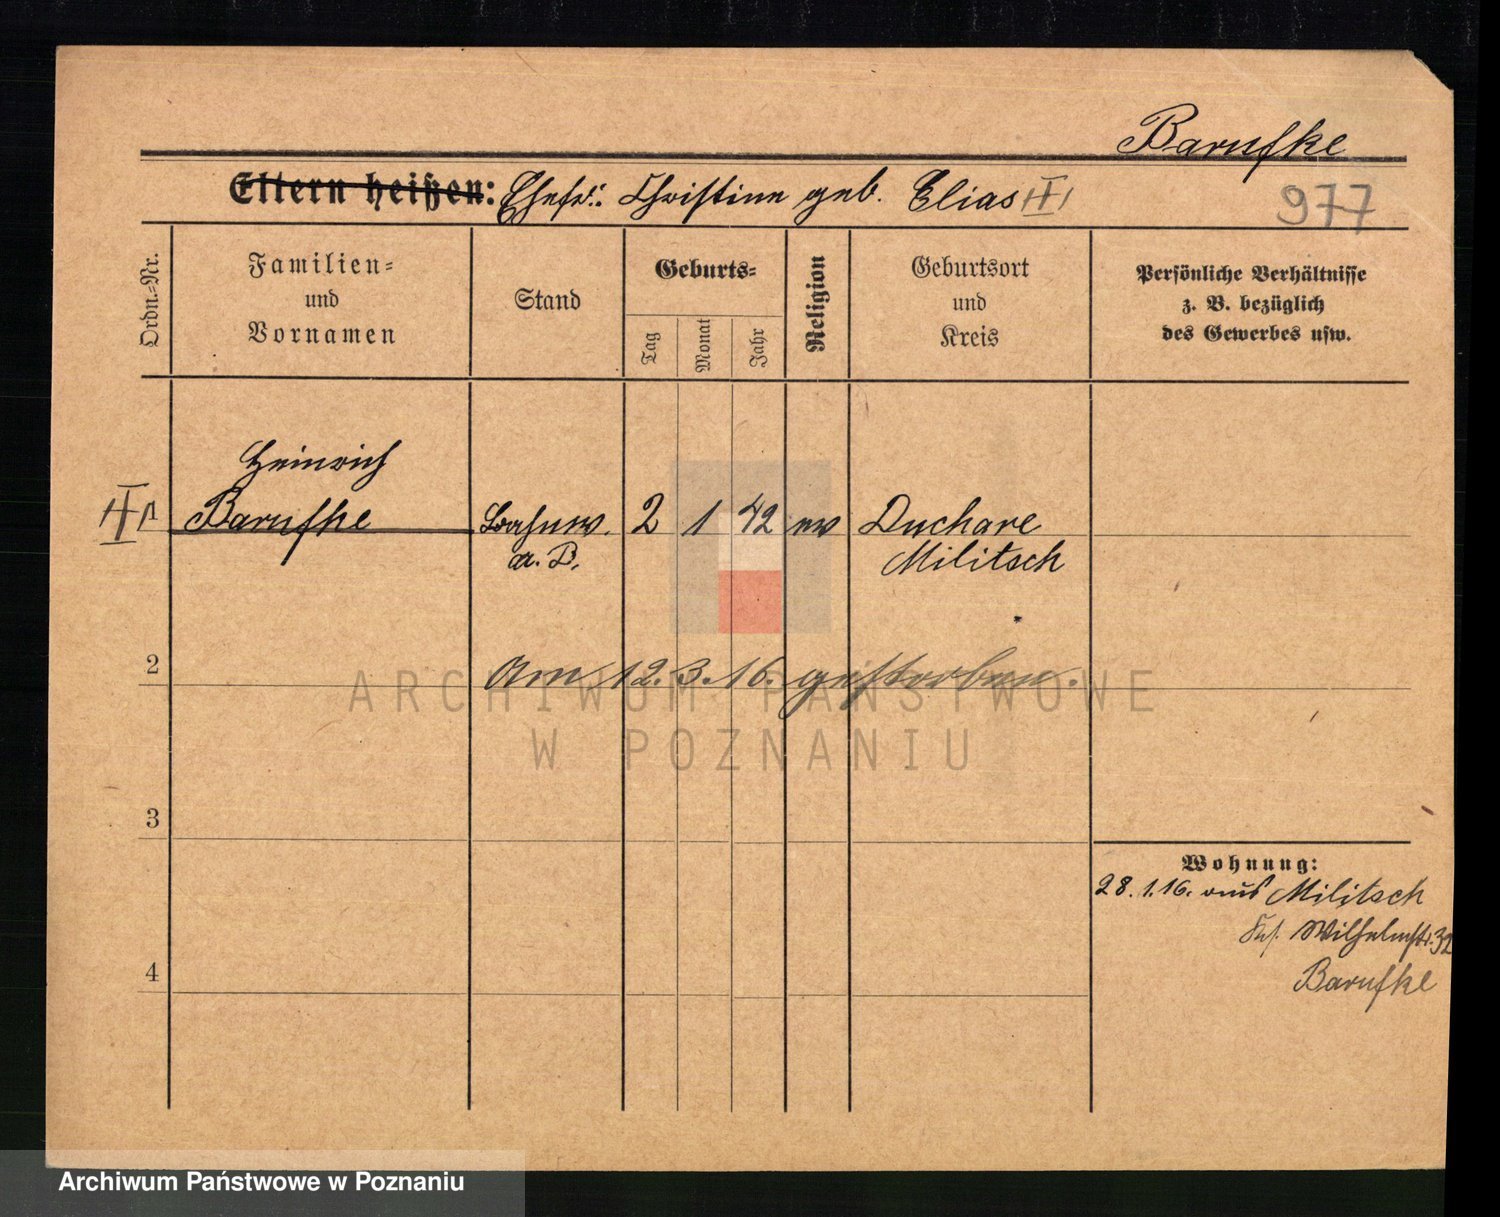 Barufke
Eltern heißen: Ehefr.: Christine geb. Elias
977
Ordn.-Nr.
Familien-
und
Vornamen
Stand
Geburts-
Tag
Monat
Jahr
Religion
Geburtsort
und
Kreis
Persönliche Verhältnisse
z. B. bezüglich
des Gewerbes usw.
Heinrich
1 Barufke Bahnw. 2 1 42 ev Duchare
a. D. Militsch
2 Am 12.3.16. gestorben.
ARCHIWUM PAŃSTWOWE
W POZNANIU
3
Wohnung:
28.1.16. aus Militsch
Wilhelmstr. 32
4 Barufke
Archiwum Państwowe w Poznaniu